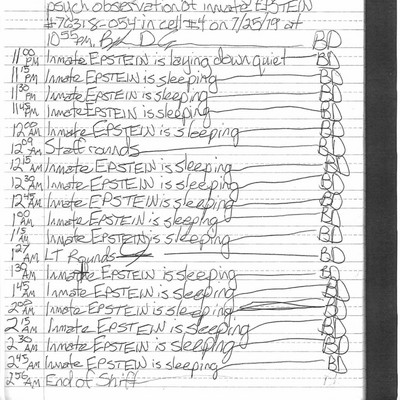 psych observation of inmate EPSTEIN
#76318-054 in cell #4 on 7/25/19 at
10 55 pm. BD
11 00 PM Inmate EPSTEIN is laying down quiet BD
11 15 PM Inmate EPSTEIN is sleeping BD
11 30 PM Inmate EPSTEIN is sleeping BD
11 45 PM Inmate EPSTEIN is sleeping BD
12 00 AM Inmate EPSTEIN is sleeping BD
12 09 AM Staff rounds BD
12 15 AM Inmate EPSTEIN is sleeping BD
12 30 AM Inmate EPSTEIN is sleeping BD
12 45 AM Inmate EPSTEIN is sleeping BD
1 00 AM Inmate EPSTEIN is sleeping BD
1 15 AM Inmate EPSTEIN is sleeping BD
1 27 AM LT Rounds BD
1 30 AM Inmate EPSTEIN is sleeping BD
1 45 AM Inmate EPSTEIN is sleeping BD
2 00 AM Inmate EPSTEIN is sleeping BD
2 15 AM Inmate EPSTEIN is sleeping BD
2 30 AM Inmate EPSTEIN is sleeping BD
2 45 AM Inmate EPSTEIN is sleeping BD
2 56 AM End of Shift